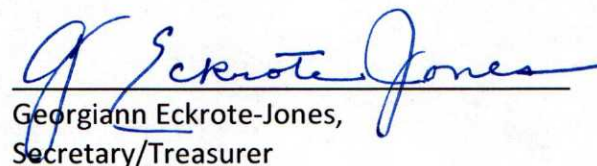 G Eckrote Jones
Georgiann Eckrote-Jones,
Secretary/Treasurer